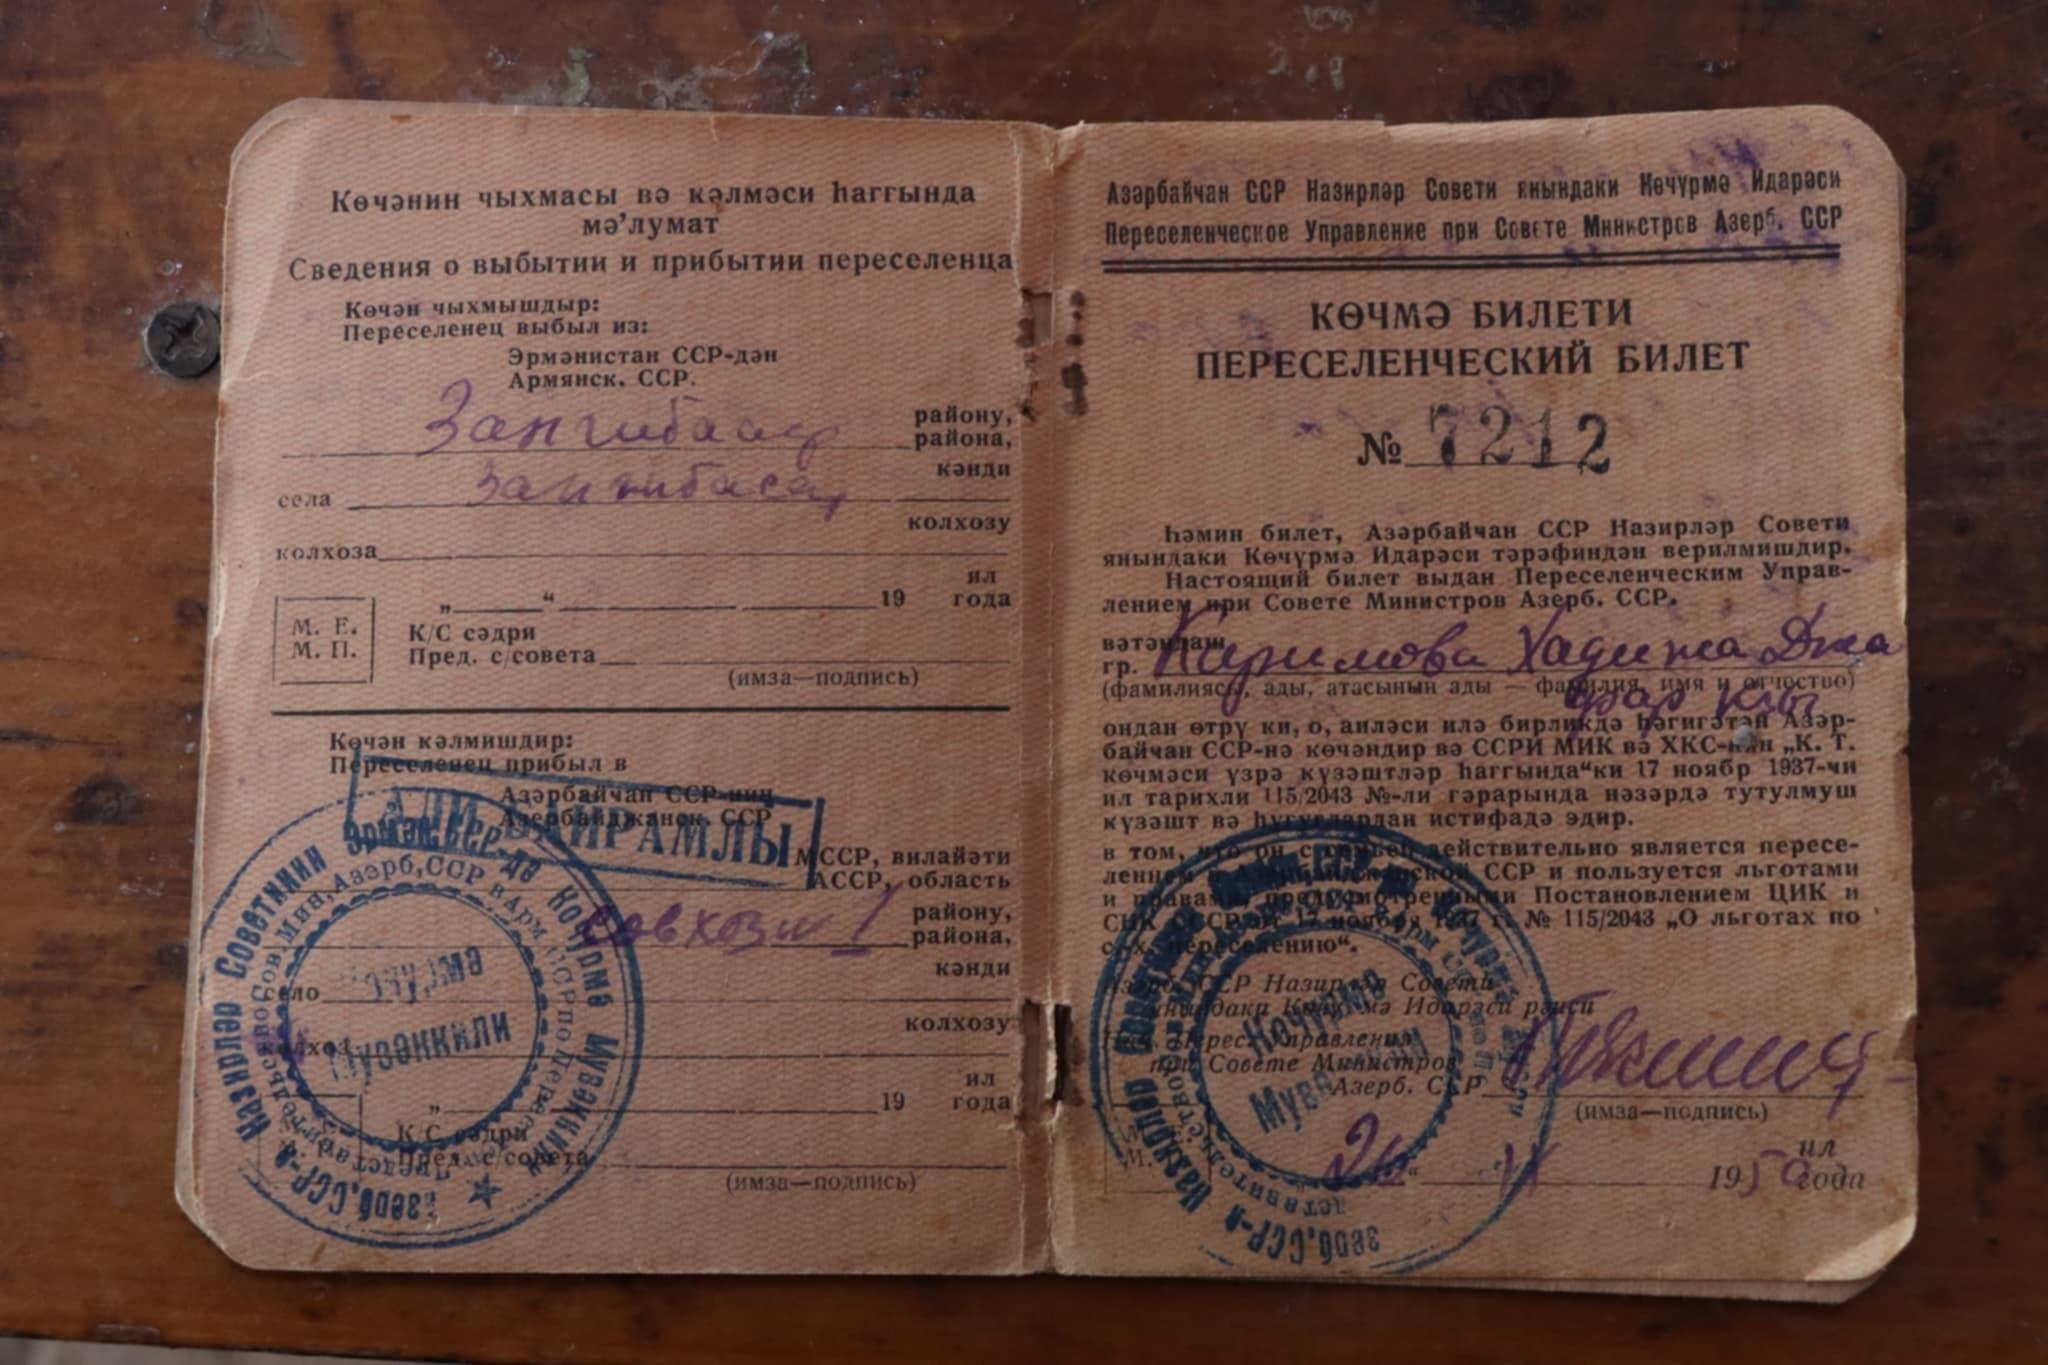 Көчәнин чыхмасы вә кәлмәси һаггында
мә’лумат
Сведения о выбытии и прибытии переселенца
Көчән чыхмышдыр:
Переселенец выбыл из:
Эрмәнистан ССР-дән
Армянск. ССР.
Зангибасар району,
района,
кәнди
села Зангибасар
колхозу
колхоза
ил
„ “ 19 года
М. Е.
М. П.
К/С сәдри
Пред. с/совета
(имза—подпись)
Көчән кәлмишдир:
Переселенец прибыл в
Азәрбайҹан ССР-нин
Азербайджанск. ССР
АЛИ БАЙРАМЛЫ
МССР, вилайәти
АССР, область
совхозы 1 району,
района,
кәнди
село
колхозу
колхоз
ил
„ 19 года
К/С сәдри
Пред. с/совета
(имза—подпись)
Азәрбайҹан ССР Назирләр Совети янындаки Көчүрмә Идарәси
Переселенческое Управление при Совете Министров Азерб. ССР
КӨЧМӘ БИЛЕТИ
ПЕРЕСЕЛЕНЧЕСКИЙ БИЛЕТ
№ 7212
Һәмин билет, Азәрбайҹан ССР Назирләр Совети
янындаки Көчүрмә Идарәси тәрәфиндән верилмишдир.
Настоящий билет выдан Переселенческим Управ-
лением при Совете Министров Азерб. ССР.
вәтәндаш
гр. Каримова Хадижа Джа
фар кзы
(фамилиясы, ады, атасынын ады — фамилия, имя и отчество)
ондан өтрү ки, о, аиләси илә бирликдә һәгигәтән Азәр-
байҹан ССР-нә көчәндир вә ССРИ МИК вә ХКС-нин „К. Т.
көчмәси үзрә күзәштләр һаггында“ки 17 ноябр 1937-чи
ил тарихли 115/2043 №-ли гәрарында нәзәрдә тутулмуш
күзәшт вә һүгуглардан истифадә эдир.
в том, что он с семьей действительно является пересе-
ленцем в Азербайджанской ССР и пользуется льготами
и правами, предусмотренными Постановлением ЦИК и
СНК СССР от 17 ноября 1937 г. № 115/2043 „О льготах по
с.-х. переселению“.
Азәрб. ССР Назирләр Совети
янындаки Көчүрмә Идарәси рәиси
Нач. Перес. Управления
при Совете Министров
Азерб. ССР
(имза—подпись)
ил
26 “ 1950 года